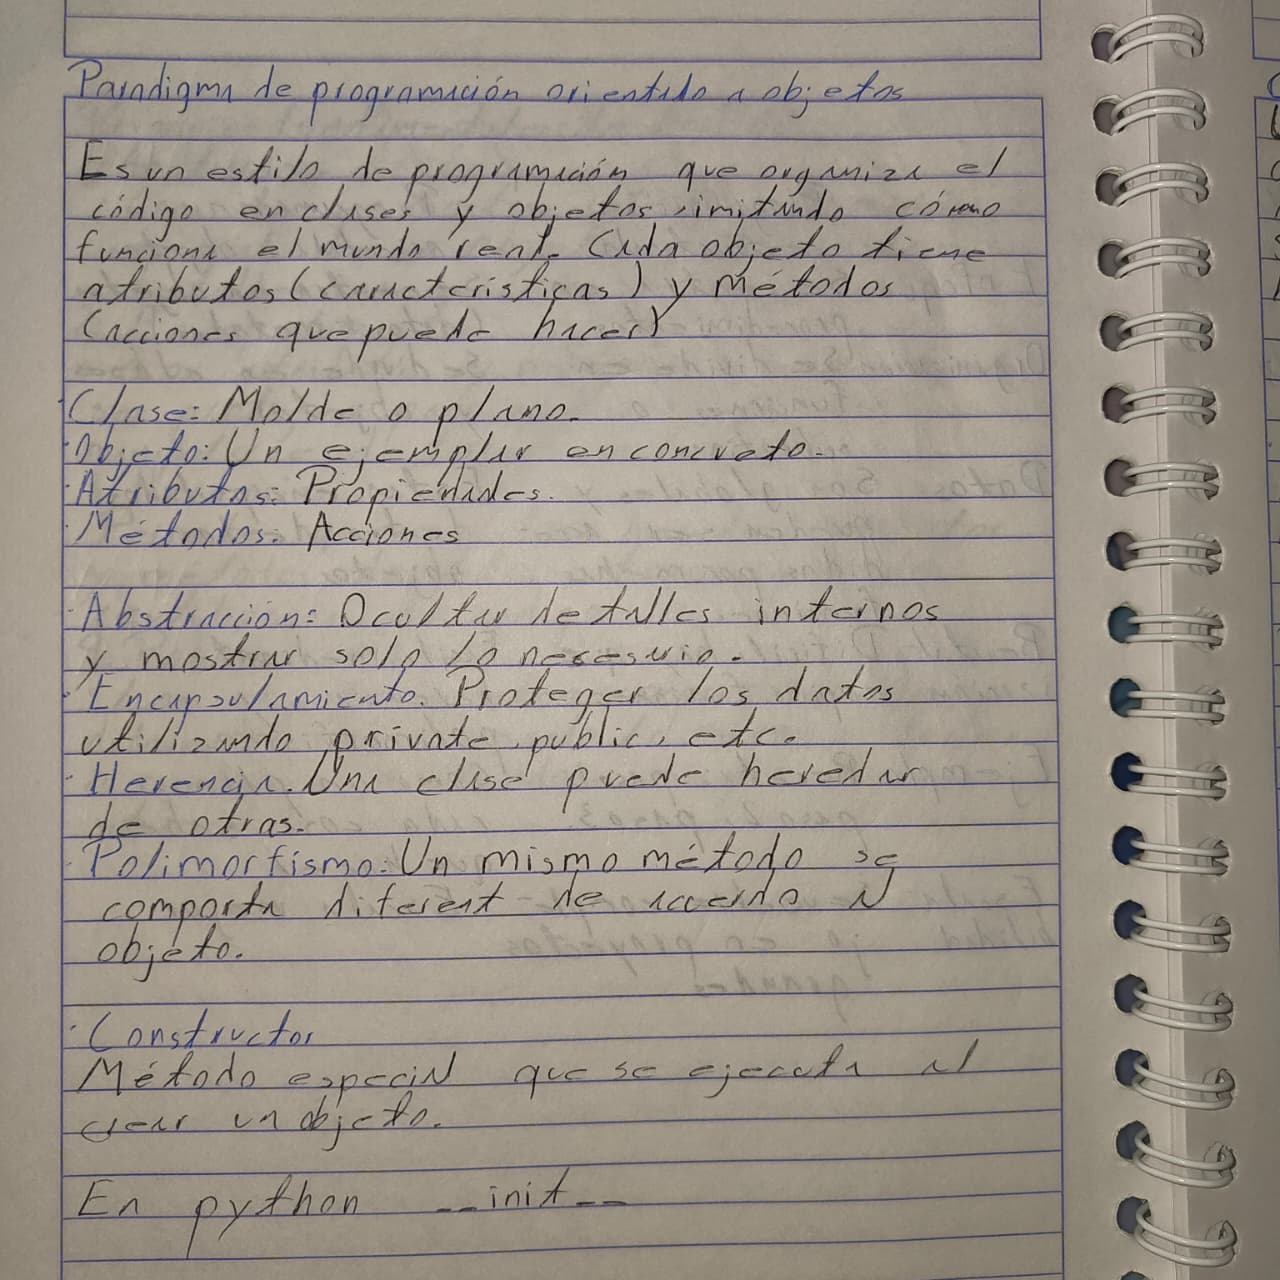 Paradigma de programación orientado a objetos
Es un estilo de programación que organiza el
código en clases y objetos, imitando cómo
funciona el mundo real. Cada objeto tiene
atributos (características) y métodos
(acciones que puede hacer)
·Clase: Molde o plano.
·Objeto: Un ejemplar en concreto.
·Atributos: Propiedades.
·Métodos: Acciones
·Abstracción: Ocultar detalles internos
y mostrar solo lo necesario.
·Encapsulamiento. Proteger los datos
utilizando private, public, etc.
·Herencia. Una clase puede heredar
de otras.
·Polimorfismo: Un mismo método se
comporta diferent de acuerdo al
objeto.
·Constructor
Método especial que se ejecuta al
crear un objeto.
En python __init__